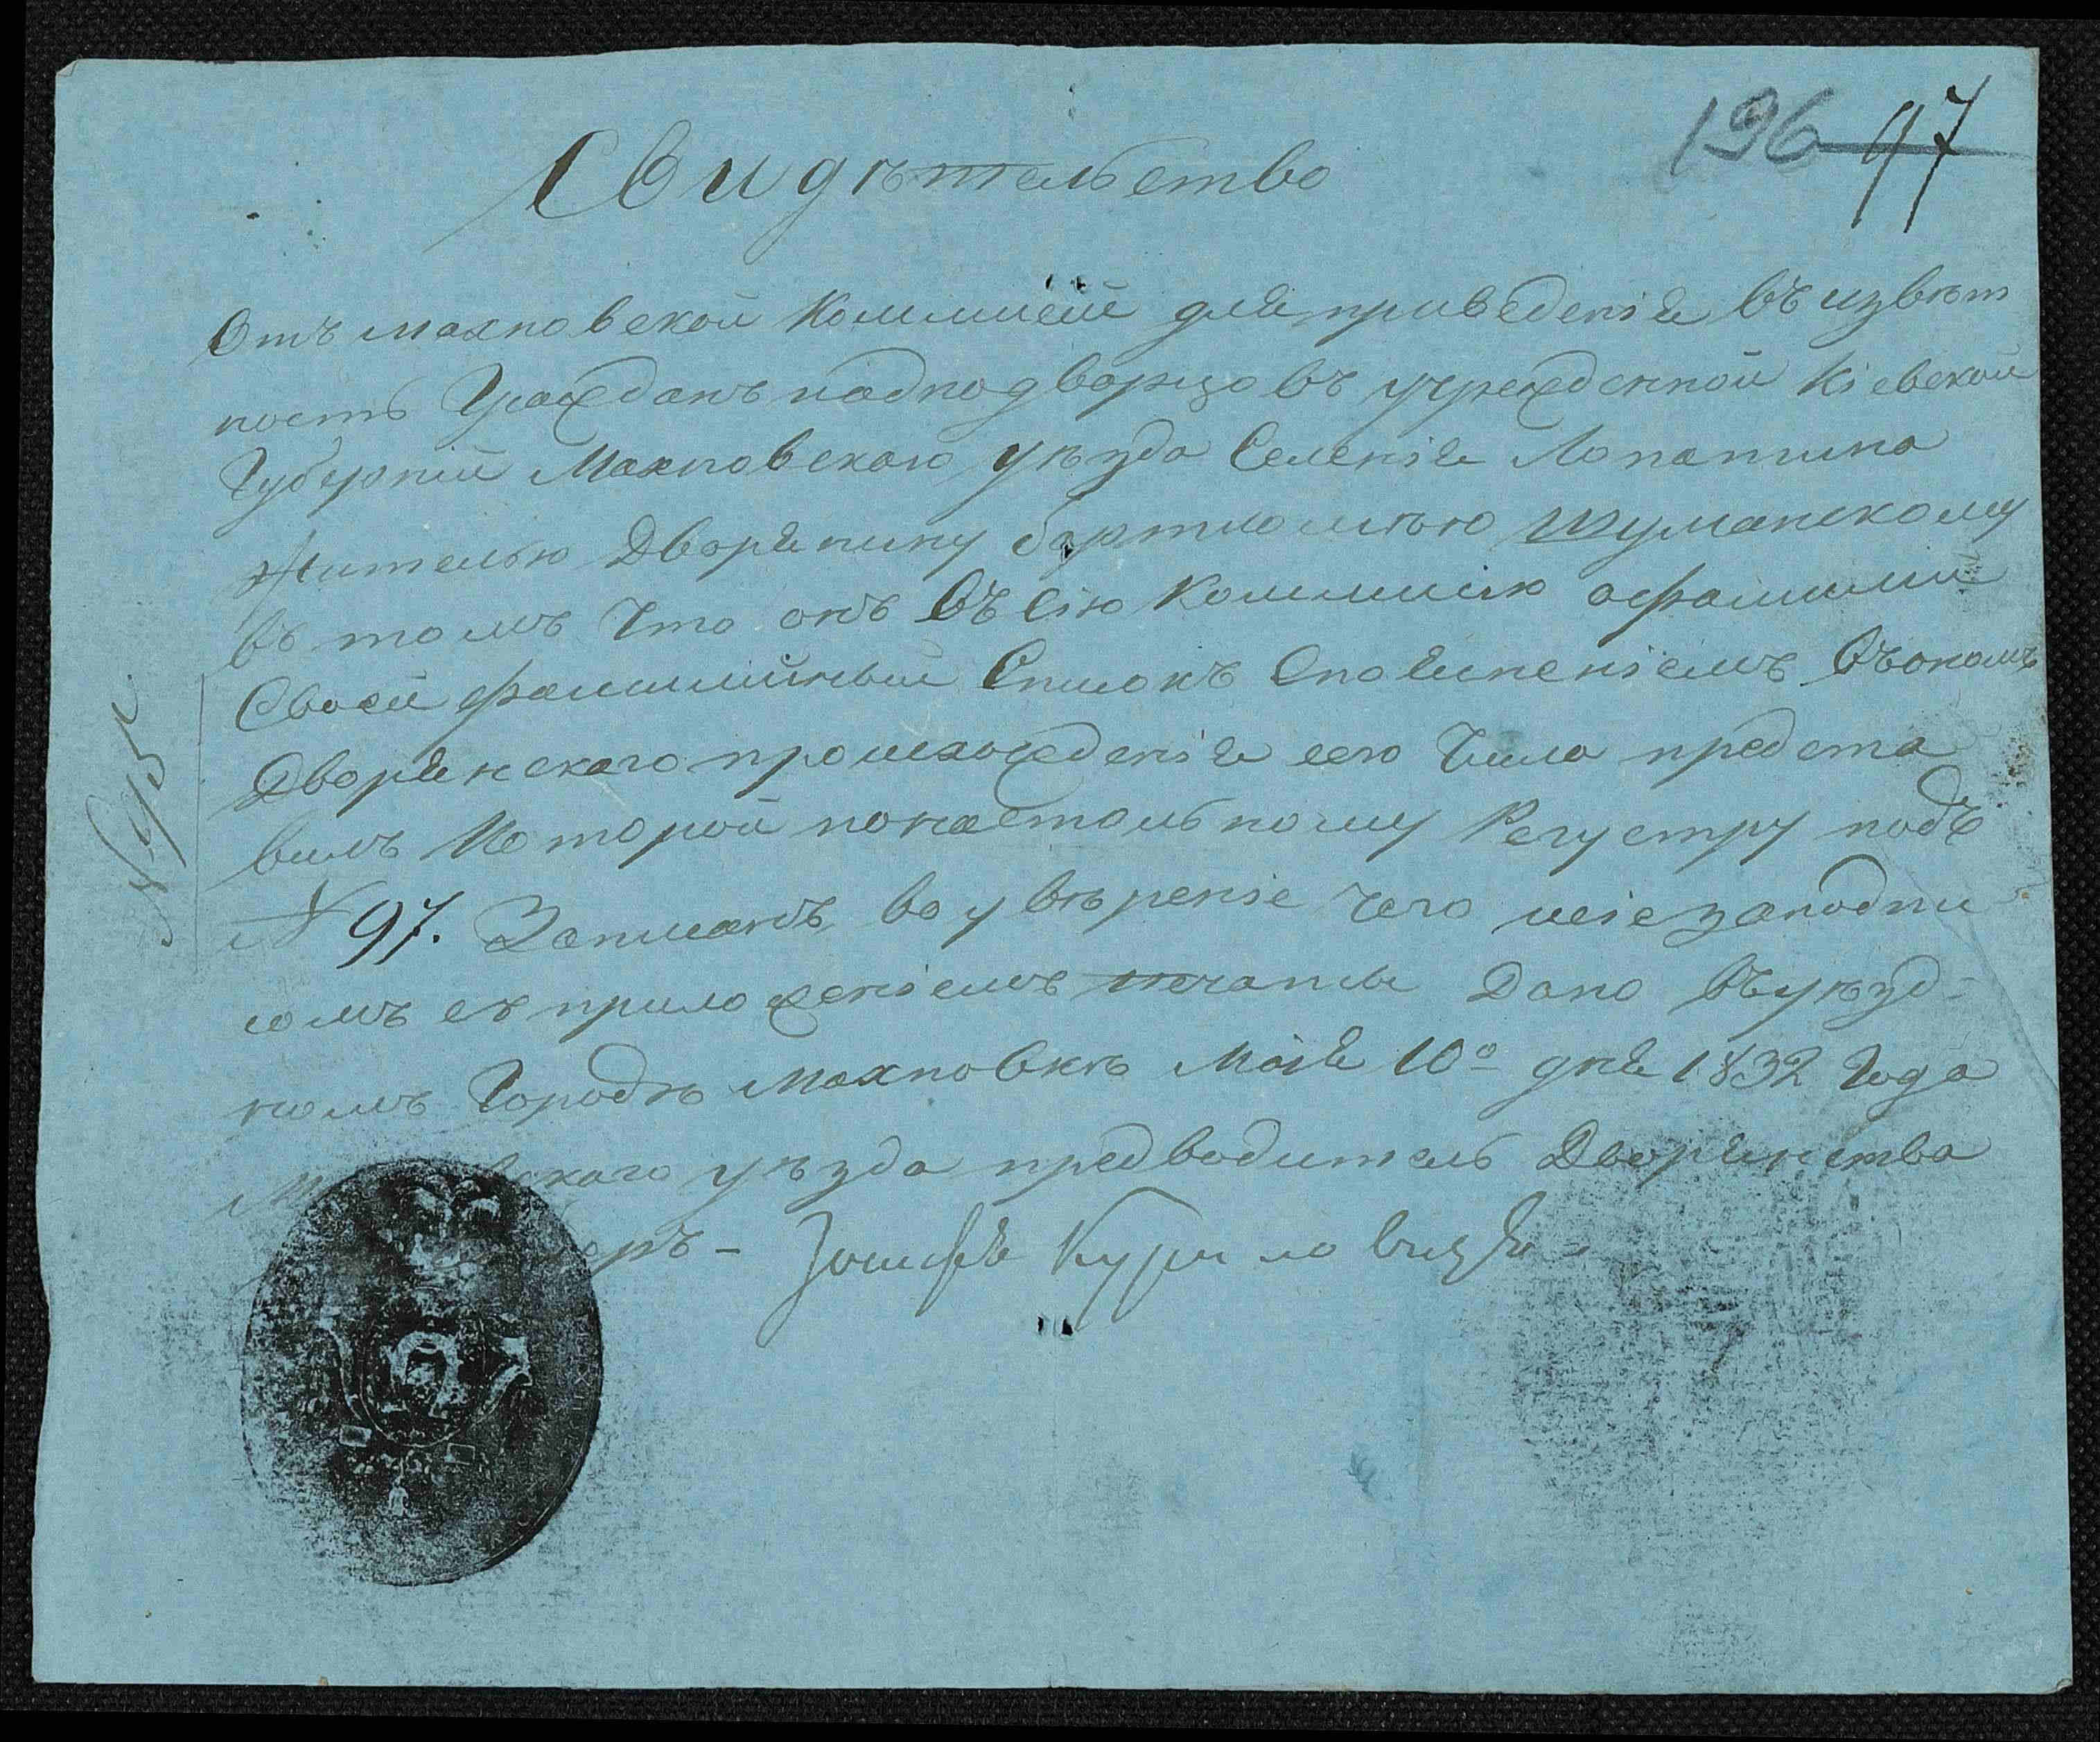 196 97
Свидѣтельство
Отъ махновской Коммисіи для приведенія въ извѣт
ность Граждан и однодворцовъ учрежденной Кіевской
Губерніи Махновскаго уѣзда Селенія Лопатина
Жителю Дворянину бартломѣю Шуманскому
въ томъ что онъ въ сію Коммисію офамиліи
Своей фамилійный Списокъ Споясненіемъ въономъ
Дворянскаго происхожденія его Числа предста
вилъ Которой понастольному Регустру подъ
№ 97. Записанъ, во увѣреніе чего сіе заподпи
сомъ съ приложеніемъ печати Дано въуѣзд-
номъ Городѣ Махновкѣ Мая 10º дня 1832 Года
уѣзда предводитель Дворянства
Іосифъ
№ 975